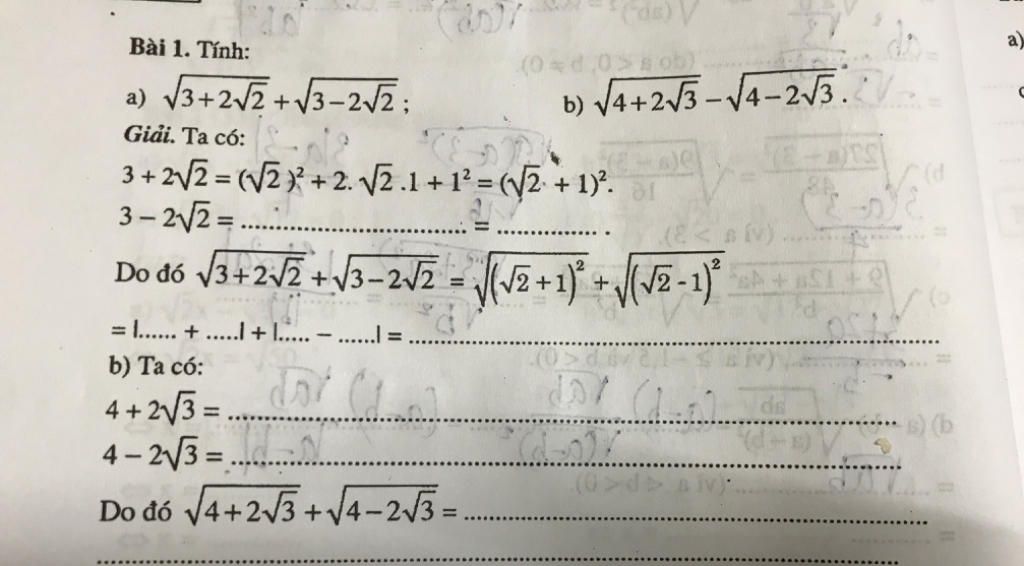 Bài 1. Tính:
a) √(3+2√2) + √(3−2√2) ; b) √(4+2√3) − √(4−2√3) .
Giải. Ta có:
3 + 2√2 = (√2)² + 2. √2 .1 + 1² = (√2 + 1)².
3 − 2√2 = ........................................ = .................. .
Do đó √(3+2√2) + √(3−2√2) = √((√2+1)²) + √((√2-1)²)
= |...... + .....| + |..... − ......| = ........................................
b) Ta có:
4 + 2√3 = ........................................
4 − 2√3 = ........................................
Do đó √(4+2√3) + √(4−2√3) = ........................................
a)